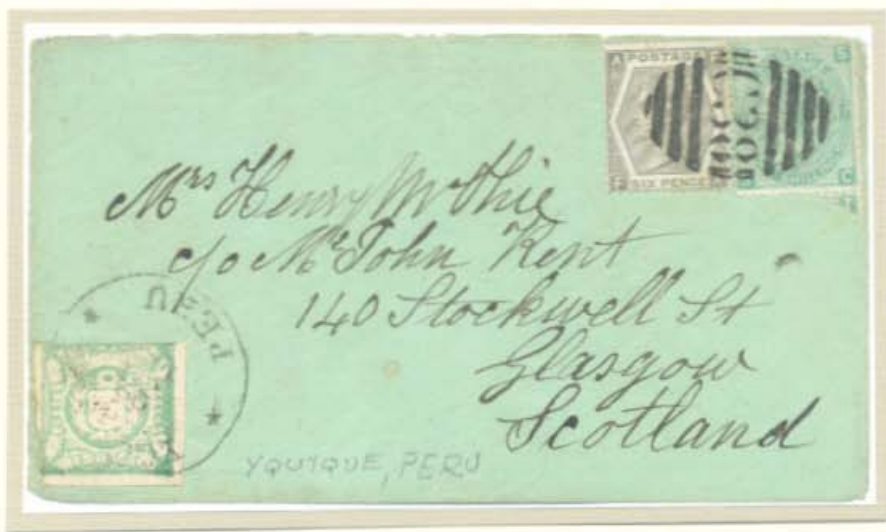 POSTAGE
SIX PENCE
Mrs Henry McPhie
c/o Mr John Kent
140 Stockwell St
Glasgow
Scotland
PERU
YQUIQUE, PERU